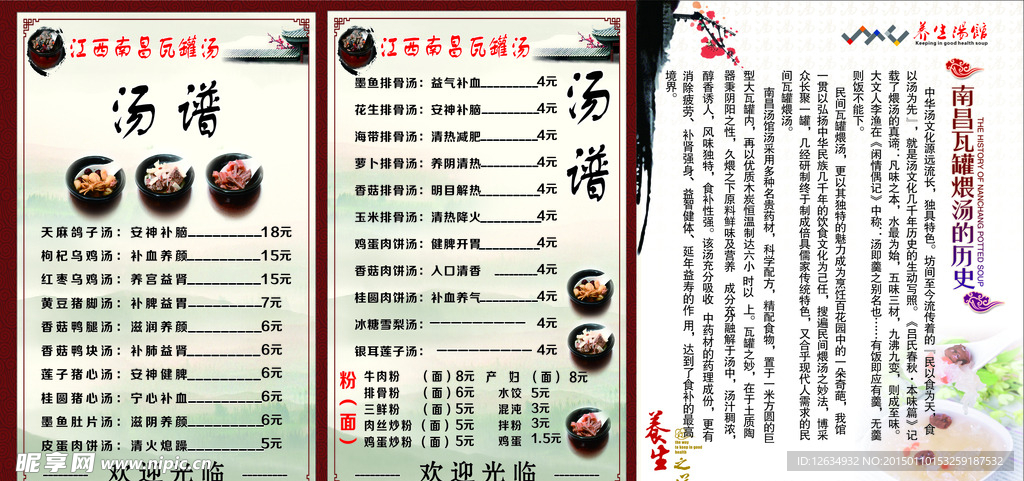 江西南昌瓦罐汤
汤 谱
天麻鸽子汤：安神补脑__________18元
枸杞乌鸡汤：补血养颜__________15元
红枣乌鸡汤：养宫益肾__________15元
黄豆猪脚汤：补脾益胃__________7元
香菇鸭腿汤：滋润养颜__________6元
香菇鸭块汤：补肺益肾__________6元
莲子猪心汤：安神健脾__________6元
桂圆猪心汤：宁心补血__________6元
墨鱼肚片汤：滋阴养颜__________6元
皮蛋肉饼汤：清火熄躁__________5元
欢迎光临
江西南昌瓦罐汤
汤谱
墨鱼排骨汤：益气补血________4元
花生排骨汤：安神补脑________4元
海带排骨汤：清热减肥________4元
萝卜排骨汤：养阴清热________4元
香菇排骨汤：明目解热________4元
玉米排骨汤：清热降火________4元
鸡蛋肉饼汤：健脾开胃________4元
香菇肉饼汤：人口清香 ______4元
桂圆肉饼汤：补血养气________4元
冰糖雪梨汤：—————————— 4元
银耳莲子汤：—————————— 4元
粉（面）
牛肉粉 （面）8元 产 妇（面）8元
排骨粉 （面）6元 水饺 5元
三鲜粉 （面）5元 混沌 3元
肉丝炒粉（面）5元 拌粉 3元
鸡蛋炒粉（面）5元 鸡蛋 1.5元
欢迎光临
养生汤馆
Keeping in good health soup
南昌瓦罐煨汤的历史
THE HISTORY OF NANCHANG POTTED SOUP
中华汤文化源远流长，独具特色。坊间至今流传着的『民以食为天，食
以汤为先』，就是汤文化几千年历史的生动写照。《吕氏春秋·本味篇》记
载了煨汤的真谛：凡味之本，水最为始，五味三材，九沸九变，则成至味。
大文人李渔在《闲情偶记》中称：汤即羹之别名也……有饭即应有羹，无羹
则饭不能下。
民间瓦罐煨汤，更以其独特的魅力成为烹饪百花园中的一朵奇葩，我馆
一贯以弘扬中华民族几千年的饮食文化为己任，搜遍民间煨汤之妙法，博采
众长聚一罐，几经研制终于制成倍具儒家传统特色，又合乎现代人需求的民
间瓦罐煨汤。
南昌汤馆汤采用多种名贵药材，科学配方，精配食物，置于一米方圆的巨
型大瓦罐内，再以优质木炭恒温制达六小 时以 上。瓦罐之妙，在于土质陶
器秉阴阳之性，久煨之下原料鲜味及营养 成分充分融解于汤中，汤汁稠浓，
醇香诱人，风味独特，食补性强。该汤充分吸收 中药材的药理成份，更有
消除疲劳、补肾强身、益智健体、延年益寿的作 用，达到了食补的最高
境界。
养生之道
the way to keep in good health
昵享网 www.nipic.cn
ID:12634932 NO:20150110153259187532